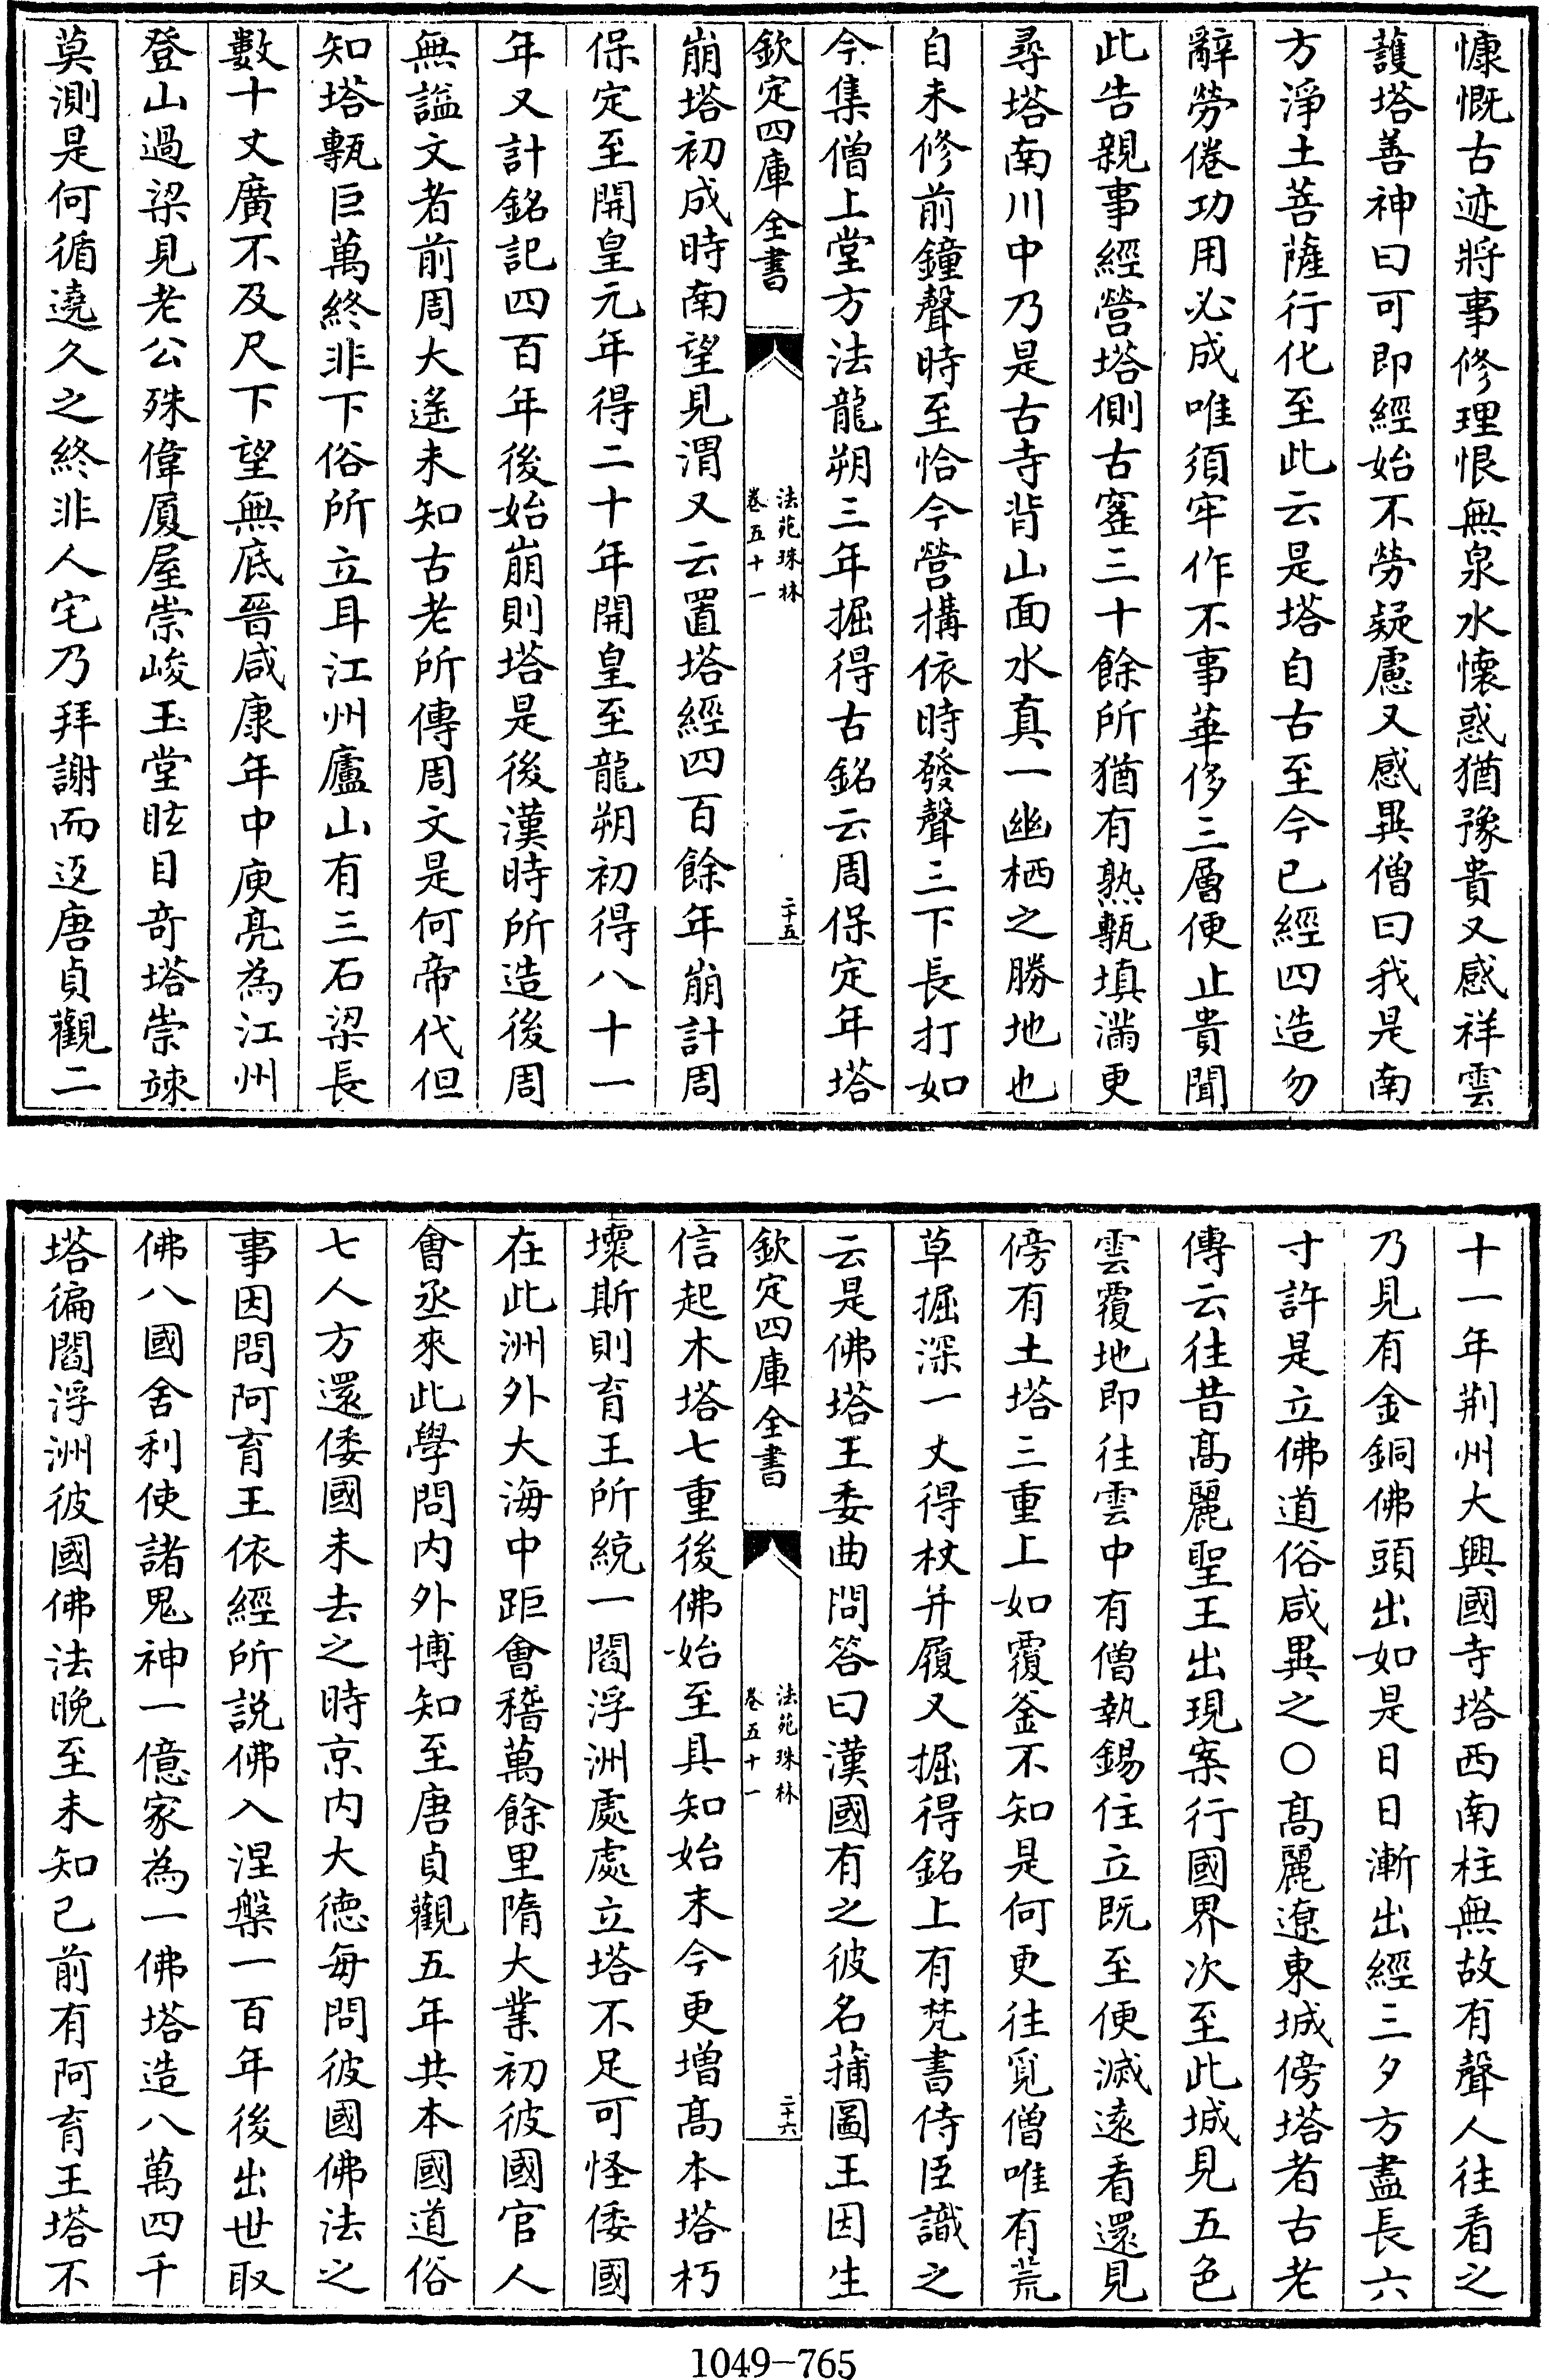 慷慨古迹將事修理恨無泉水懷惑猶豫貴又感祥雲
䕶塔善神曰可即經始不勞疑慮又感異僧曰我是南
方淨土菩薩行化至此云是塔自古至今已經四造勿
辭勞倦功用必成唯須牢作不事華侈三層便止貴聞
此告親事經營塔側古窰三十餘所猶有熟甎填滿更
尋塔南川中乃是古寺背山面水真一幽栖之勝地也
自未修前鐘聲時至恰今營構依時發聲三下長打如
今集僧上堂方法龍朔三年掘得古銘云周保定年塔
欽定四庫全書
法苑珠林
卷五十一
二十五
崩塔初成時南望見渭又云置塔經四百餘年崩計周
保定至開皇元年得二十年開皇至龍朔初得八十一
年又計銘記四百年後始崩則塔是後漢時所造後周
無諡文者前周大遙未知古老所傳周文是何帝代但
知塔甎巨萬終非下俗所立耳江州廬山有三石梁長
數十丈廣不及尺下望無底晉咸康年中庾亮為江州
登山過梁見老公殊偉厦屋崇峻玉堂眩目奇塔崇竦
莫測是何循遶久之終非人宅乃拜謝而返唐貞觀二
十一年荆州大興國寺塔西南柱無故有聲人往看之
乃見有金銅佛頭出如是日日漸出經三夕方盡長六
寸許是立佛道俗咸異之○髙麗遼東城傍塔者古老
傳云往昔髙麗聖王出現案行國界次至此城見五色
雲覆地即往雲中有僧執錫住立既至便滅遠看還見
傍有土塔三重上如覆釜不知是何更往覓僧唯有荒
草掘深一丈得杖并履又掘得銘上有梵書侍臣識之
云是佛塔王委曲問答曰漢國有之彼名蒲圖王因生
欽定四庫全書
法苑珠林
卷五十一
二十六
信起木塔七重後佛始至具知始末今更增髙本塔朽
壞斯則育王所統一閻浮洲處處立塔不足可怪倭國
在此洲外大海中距會稽萬餘里隋大業初彼國官人
會丞來此學問内外博知至唐貞觀五年共本國道俗
七人方還倭國未去之時京内大德每問彼國佛法之
事因問阿育王依經所説佛入涅槃一百年後出世取
佛八國舍利使諸鬼神一億家為一佛塔造八萬四千
塔徧閻浮洲彼國佛法晚至未知已前有阿育王塔不
1049-765